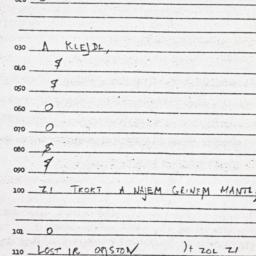 030 A KLEJDL,
040 $
050 $
060 0
070 0
080 $
090 $
100 ZI TROKT A NAJEM GRINEM MANTL,
101 0
110 LOST IR OPISTON )+ ZOL ZI